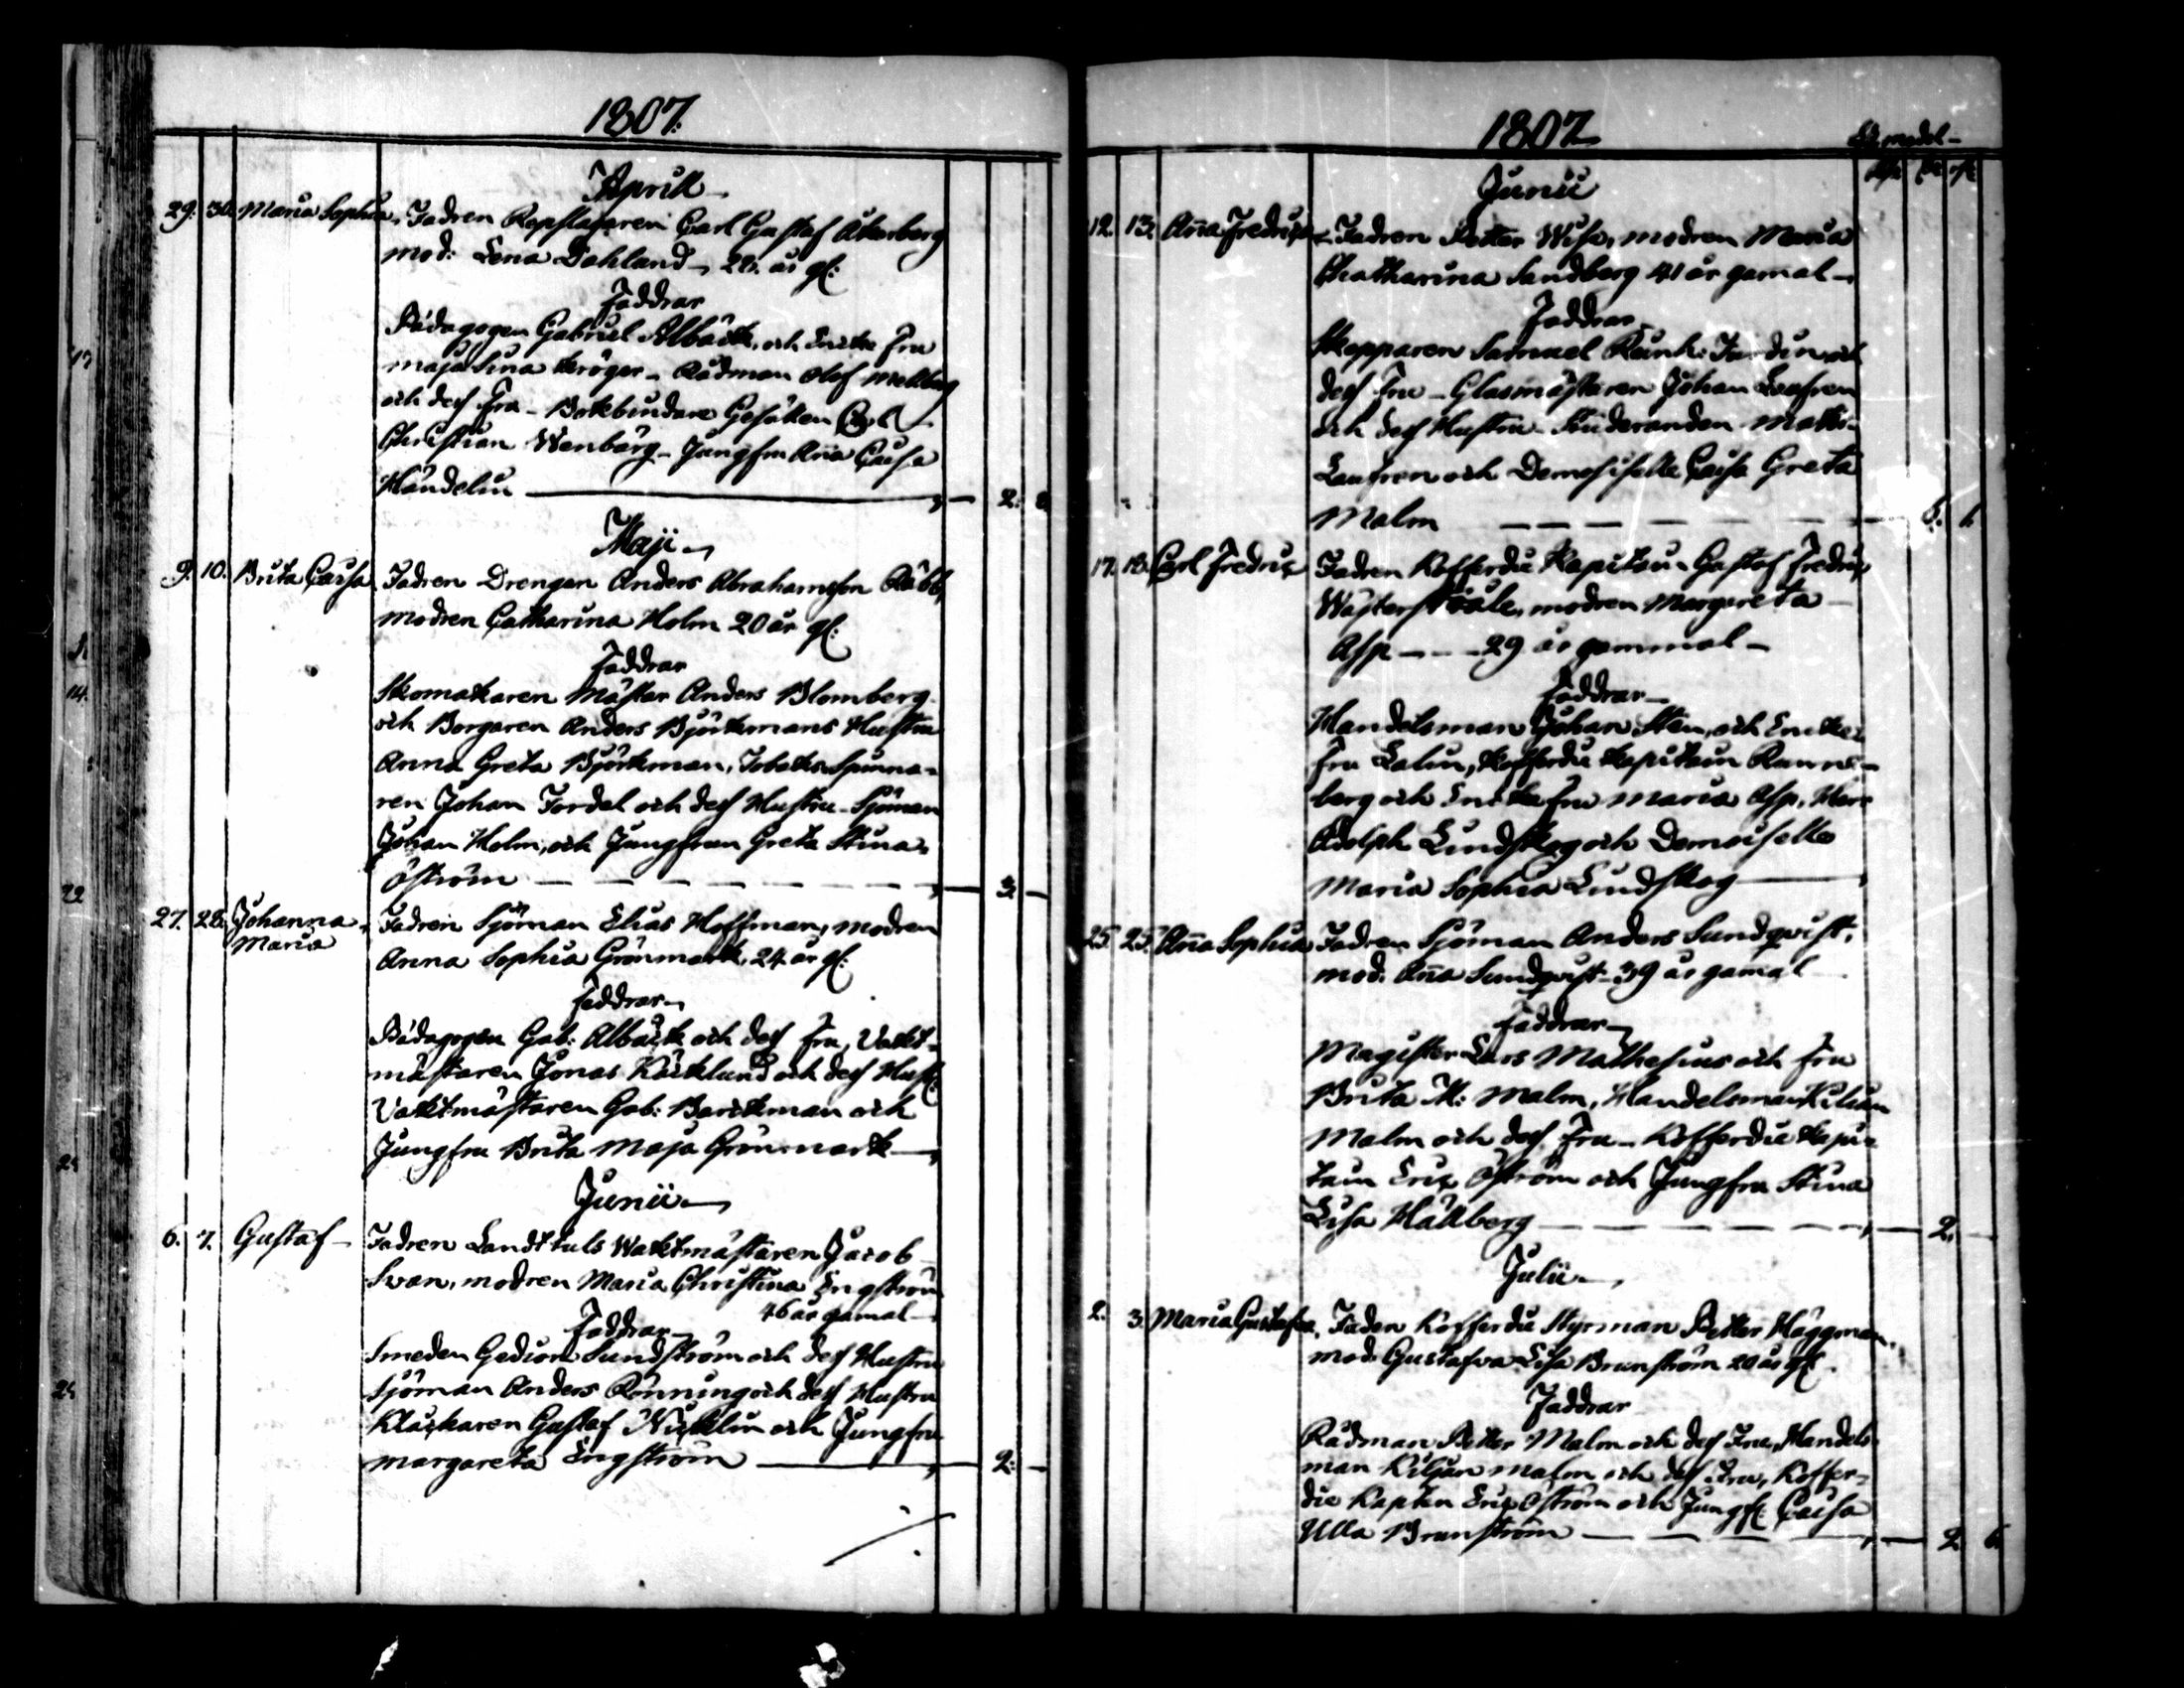 1807.
Aprill
29. 30. Maria Sophia. Fadren Repslagaren Carl Gustaf Åkerberg
mod: Lena Dahland 28. år gl:
Faddrar
Pädagogen Gabriel Albäck, och Enke Fru
Maja Lina Kröger - Rådman Olof Mellberg
och dess Fru - Bokbindare Gesällen Carl
Christian Wenberg - Jungfru Aña Caisa
Händelin 2: 8
Maji
9. 10. Brita Caisa Fadren Drengen Anders Abrahamsson Räbb,
modren Catharina Holm 20 år gl:
Faddrar
Skomakaren Mästar Anders Blomberg
och Borgaren Anders Björkmans Hustru
Anna Greta Björkman, Tobaks Spinna-
ren Johan Fordel och dess Hustru - Sjöman
Johan Holm, och Jungfrun Greta Stina
Öström 3
27. 28. Johanna
Maria
Fadren Sjöman Elias Hoffman, modren
Anna Sophia Grönmark, 24 år gl:
Faddrar
Pädagogen Gab: Albäck och dess Fru, Vakt-
mästaren Jonas Käcklund och dess Hust:
Vaktmästaren Gab: Barckman och
Jungfru Brita Maja Grönmark
Junii
6. 7. Gustaf Fadren Landttuls Waktmästaren Jacob
Svan, modren Maria Christina Engström
46 år gamal
Faddrar
Smeden Gedion Sundström och dess Hustru
Sjöman Anders Rönning och dess Hustru
Klåckaren Gustaf Nicklin och Jungfru
Margareta Engström 2:
1807
Junii
12. 13. Aña Fredrica Fadren Petter Wise, modren Maria
Chatharina Sandberg 41 år gamal
Faddrar
Skepparen Samuel Reinh: Fordin och
dess Fru - Glasmästaren Johan Laufren
och dess Hustru Studeranden Maths
Laufren och Demoiselle Caisa Greta
Malm 6. 1.
17. 18. Carl Fredric Fadren Kofferdie Kapitain Gustaf Fredric
Wästerstråle, modren Margareta
Asp - - - 29 år gammal
Faddrar
Handelsman Johan Sten, och Enke
Fru Lalin, Kofferdie Kapitain Ranne-
berg och Enke Fru Maria Asp, Herr
Adolph Lindskog och Demoiselle
Maria Sophia Lindskog
25. 25. Aña Sophia Fadren Sjöman Anders Sundqvist,
mod. Aña Sundqvist - 39 år gamal
Faddrar
Magister Lars Mathesius och Fru
Brita M: Malm, Handelsman Kilian
Malm och dess Fru - Kofferdie Kapi-
tain Eric Öström och Jungfru Stina
Lisa Hällberg 2.
Julii
2. 3. Maria Gustafva. Faden Kofferdie Styrman Petter Häggman,
mod. Gustafva Lisa Brunström 20 år gl:
Faddrar
Rådman Petter Malm och dess Fru, Handels-
man Kiljan Malm och dess Fru, Koffer-
die Kapten Eric Öström och Jungf: Caisa
Ulla Brunström 2 6.